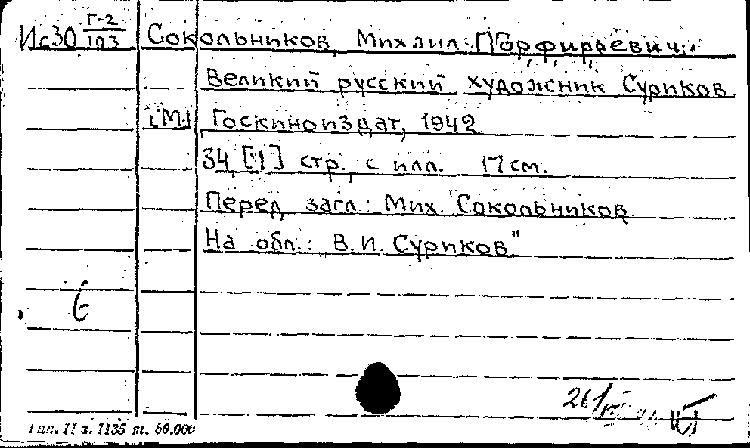 Ис30 Г-2/103 Сокольников, Михаил Порфирьевич.
Великий русский художник Суриков
[М.] Госкиноиздат, 1942
34, [1] стр. с илл. 17 см.
Перед загл.: Мих. Сокольников
На обл.: В.И. Суриков"
6
26/
Тип. 11 з. 1135 т. 50.000